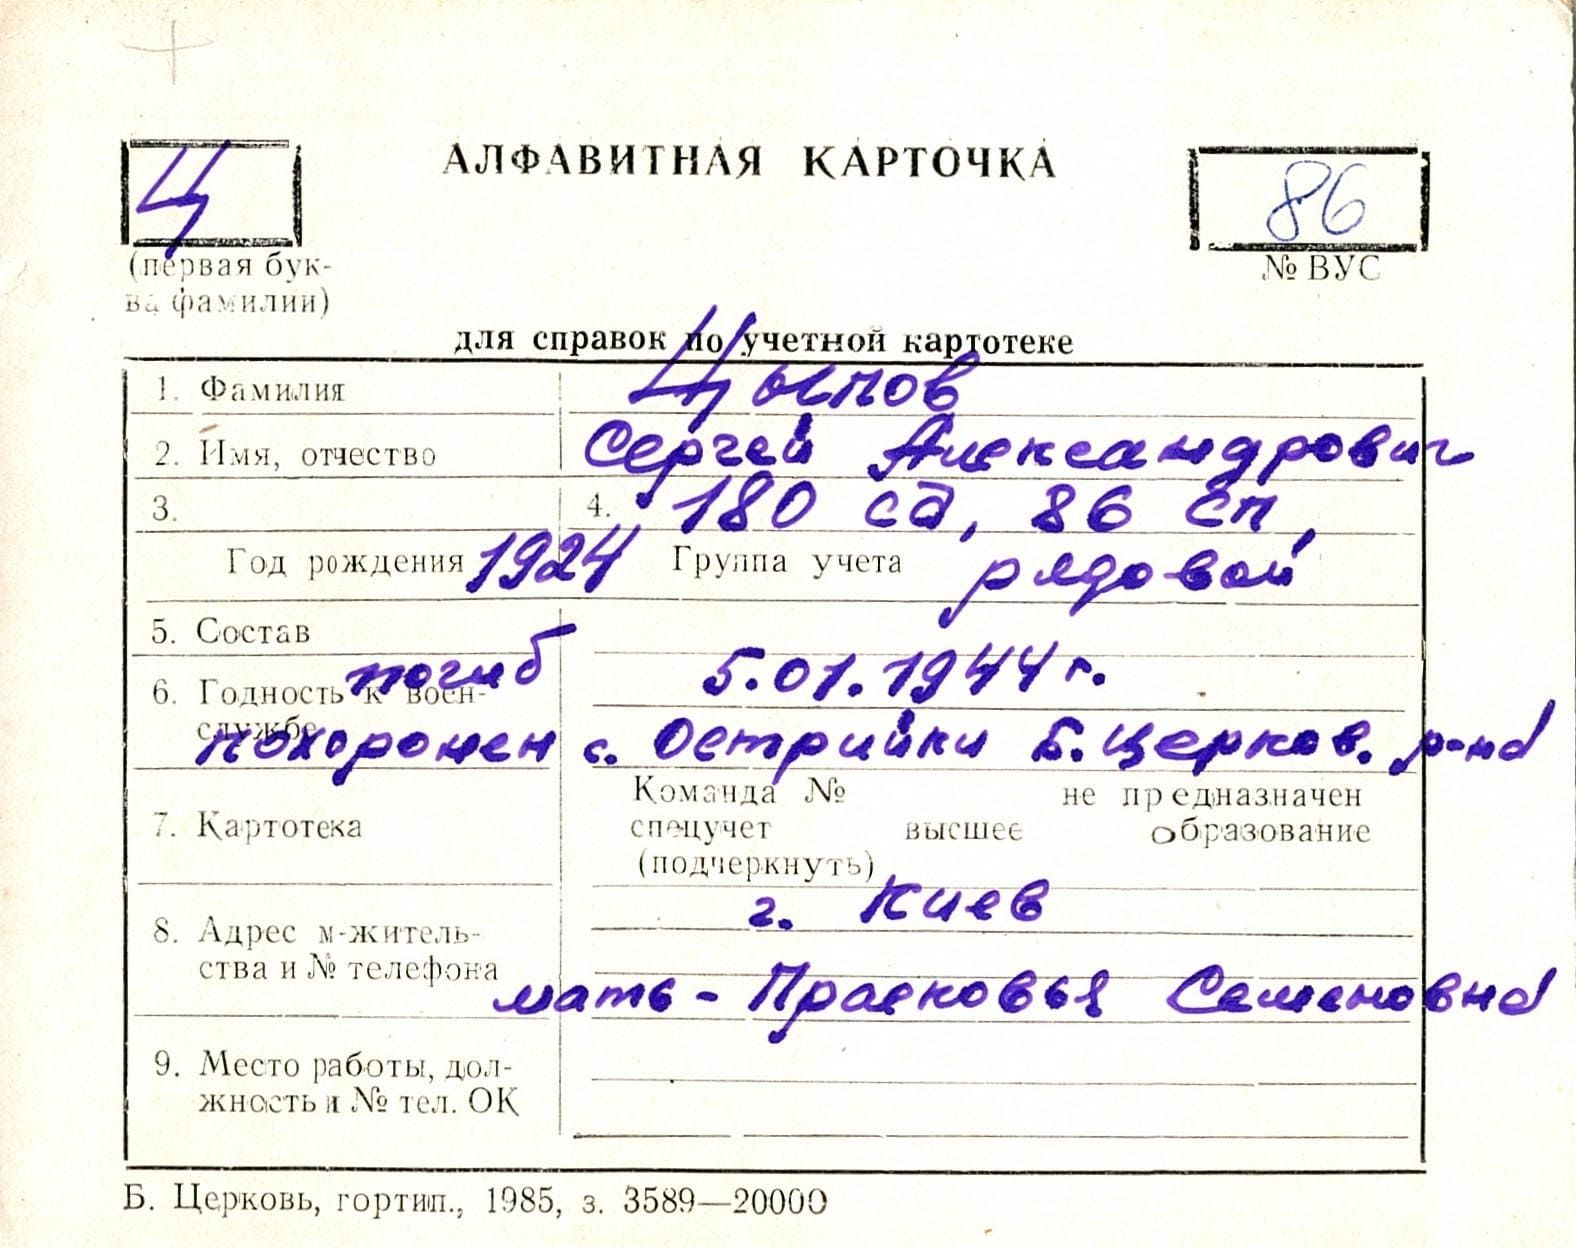 Ц
АЛФАВИТНАЯ КАРТОЧКА
86
(первая бук-
ва фамилии)
№ ВУС
для справок по учетной картотеке
1. Фамилия Цыпов
2. Имя, отчество Сергей Александрович
3. 4. 180 сд, 86 сп,
Год рождения 1924 Группа учета рядовой
5. Состав
погиб 5.01.1944 г.
6. Годность к воен-
службе
похоронен с. Острийки Б. Церков. р-на
Команда № не предназначен
7. Картотека спецучет высшее образование
(подчеркнуть)
г. Киев
8. Адрес м-житель-
ства и № телефона
мать - Прасковья Семеновна
9. Место работы, дол-
жность и № тел. ОК
Б. Церковь, гортип., 1985, з. 3589—20000